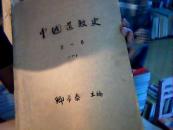 中國道教史
第一卷
卿希泰 主編